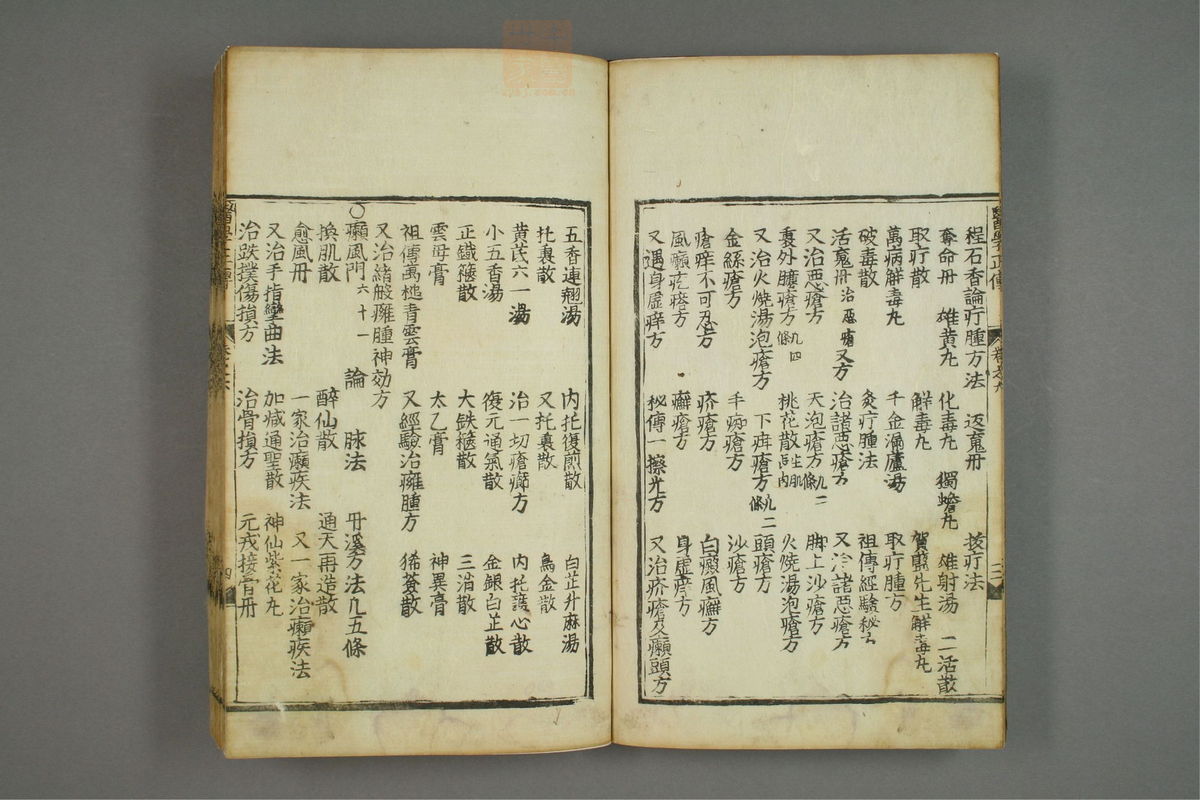 程石香論疔腫方法　返䰟丹　拔疔法
奪命丹　雄黃丸　化毒丸　獨蟾丸　雄射湯　二活散
取疔散　解毒丸　先生解毒丸
萬病解毒丸　千金漏蘆湯　取疔腫方
破毒散　灸疔腫法　祖傳經驗秘方
活䰟丹治惡瘡又方　治諸惡瘡方　又治諸惡瘡方
又治惡瘡方　天泡瘡方二條　脚上沙瘡方
裏外臁瘡方凡四條　桃花散生肌　火燒湯泡瘡方
又治火燒湯泡瘡方　下疳瘡方凡二條　頭瘡方
金絲瘡方　手瘡方　沙瘡方
瘡痒不可忍方　疥瘡方　白癜風癬方
風癩疙瘩方　癬瘡方　身虛痒方
又遇身虛痒方　秘傳一擦光方　又治疥瘡及癩頭方
醫學正傳
卷之九
三
五香連翹湯　內托復煎散　白芷升麻湯
托裏散　又托裏散　烏金散
黃芪六一湯　治一切瘡癤方　內托護心散
小五香湯　復元通氣散　金銀白芷散
正鐵箍散　大鉄箍散　三消散
雲母膏　太乙膏　神異膏
祖傳萬槌青雲膏　又經驗治癰腫方　豨薟散
又治諸般癰腫神効方
○癩風門六十一　論　脉法　丹溪方法凡五條
換肌散　醉仙散　通天再造散
愈風丹　一家治癩疾法　又一家治癩疾法
又治手指攣曲法　加減通聖散　神仙紫花丸
治跌撲傷損方　治骨損方　元戎接骨丹
四